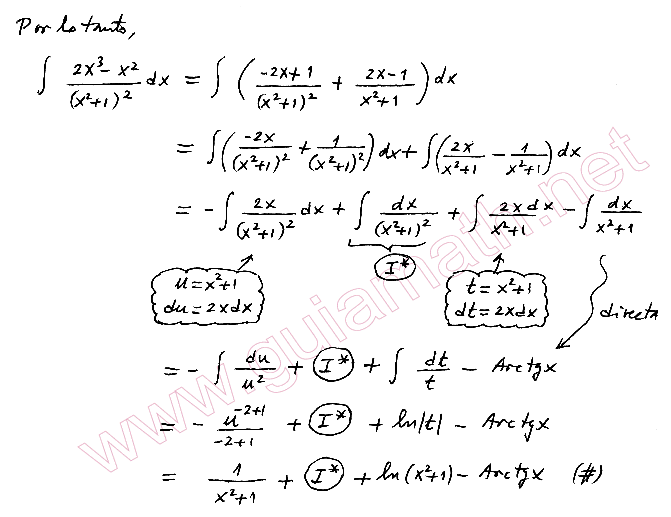 Por lo tanto,
∫ (2x³ - x²)/(x²+1)² dx = ∫ ( (-2x+1)/(x²+1)² + (2x-1)/(x²+1) ) dx
= ∫ ( (-2x)/(x²+1)² + 1/(x²+1)² ) dx + ∫ ( 2x/(x²+1) - 1/(x²+1) ) dx
= - ∫ 2x/(x²+1)² dx + ∫ dx/(x²+1)² + ∫ 2x dx/(x²+1) - ∫ dx/(x²+1)
I*
u = x²+1
du = 2x dx
t = x²+1
dt = 2x dx
directa
= - ∫ du/u² + I* + ∫ dt/t - Arctgx
= - u⁻²⁺¹/(-2+1) + I* + ln|t| - Arctgx
= 1/(x²+1) + I* + ln(x²+1) - Arctgx (#)
www.guiamath.net